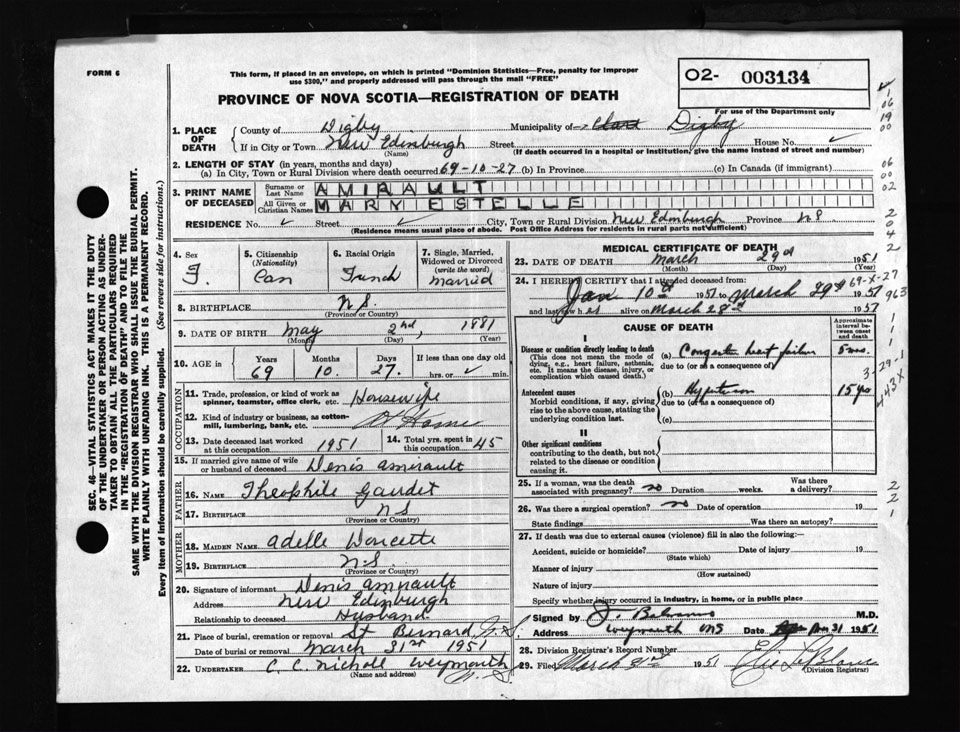 FORM 6
This form, if placed in an envelope, on which is printed "Dominion Statistics—Free, penalty for improper
use $300," and properly addressed will pass through the mail "FREE"
O2- 003134
PROVINCE OF NOVA SCOTIA—REGISTRATION OF DEATH
For use of the Department only
1. PLACE OF DEATH
County of Digby Municipality of Clare Digby
If in City or Town New Edinburgh Street House No. ✓
(Name) (If death occurred in a hospital or institution, give the name instead of street and number)
2. LENGTH OF STAY (in years, months and days)
(a) In City, Town or Rural Division where death occurred 69-10-27 (b) In Province (c) In Canada (if immigrant)
3. PRINT NAME OF DECEASED
Surname or Last Name AMIRAULT
All Given or Christian Names MARY ESTELLE
RESIDENCE No. ✓ Street ✓ City, Town or Rural Division New Edinburgh Province N S
(Residence means usual place of abode. Post Office Address for residents in rural parts not sufficient)
4. Sex F.
5. Citizenship (Nationality) Can
6. Racial Origin French
7. Single, Married, Widowed or Divorced (write the word) married
8. BIRTHPLACE N.S.
(Province or Country)
9. DATE OF BIRTH May 2nd, 1881
(Month) (Day) (Year)
10. AGE IN Years 69 Months 10. Days 27. If less than one day old
hrs. or ✓ min.
OCCUPATION
11. Trade, profession, or kind of work as spinner, teamster, office clerk, etc. Housewife
12. Kind of industry or business, as cotton-mill, lumbering, bank, etc. At Home
13. Date deceased last worked at this occupation 1951
14. Total yrs. spent in this occupation 45
15. If married give name of wife or husband of deceased Denis Amirault
FATHER
16. NAME Theophile Gaudet
17. BIRTHPLACE N S
(Province or Country)
MOTHER
18. MAIDEN NAME Adelle Doucette
19. BIRTHPLACE N.S.
(Province or Country)
20. Signature of informant Denis Amirault
Address New Edinburgh
Relationship to deceased Husband
21. Place of burial, cremation or removal St Bernard N.S.
Date of burial or removal March 31st 1951
22. UNDERTAKER C. C. Nichole Weymouth N.S
(Name and address)
MEDICAL CERTIFICATE OF DEATH
23. DATE OF DEATH March 29th 1951
(Month) (Day) (Year)
24. I HEREBY CERTIFY that I attended deceased from:
Jan 10th 1951 to March 29th 1951
and last saw her alive on March 28th 1951
CAUSE OF DEATH
Approximate interval between onset and death
I
Disease or condition directly leading to death
(This does not mean the mode of dying, e.g., heart failure, asthenia, etc. It means the disease, injury, or complication which caused death.)
(a) Congestive heart failure 5 mos.
due to (or as a consequence of)
Antecedent causes
Morbid conditions, if any, giving rise to the above cause, stating the underlying condition last.
(b) 15 yrs
due to (or as a consequence of)
(c)
II
Other significant conditions
contributing to the death, but not related to the disease or condition causing it.
25. If a woman, was the death associated with pregnancy? no Duration weeks. Was there a delivery?
26. Was there a surgical operation? no Date of operation 19
State findings Was there an autopsy?
27. If death was due to external causes (violence) fill in also the following:—
Accident, suicide or homicide? Date of injury 19
(State which)
Manner of injury
(How sustained)
Nature of injury
Specify whether injury occurred in industry, in home, or in public place
Signed by M.D.
Address Weymouth NS Date 31 1951
28. Division Registrar's Record Number
29. Filed March 31st 1951 Elie LeBlanc
(Division Registrar)
SEC. 46—VITAL STATISTICS ACT MAKES IT THE DUTY
OF THE UNDERTAKER OR PERSON ACTING AS UNDER-
TAKER TO OBTAIN ALL THE PARTICULARS REQUIRED
IN THE "REGISTRATION OF DEATH" AND TO FILE THE
SAME WITH THE DIVISION REGISTRAR WHO SHALL ISSUE THE BURIAL PERMIT.
WRITE PLAINLY WITH UNFADING INK. THIS IS A PERMANENT RECORD.
Every item of information should be carefully supplied. (See reverse side for instructions.)
1
06
19
00
06
00
02
2
0
4
2
69-X-27
963
1
1
1
3-29-1
443X
2
2
1